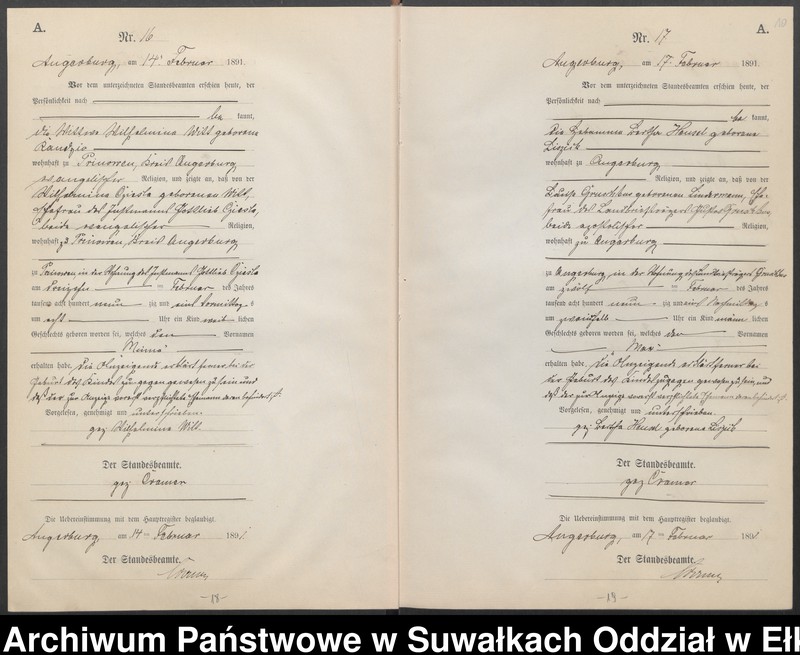 A.
Nr. 16
Angerburg, am 14. Februar 1891.
Vor dem unterzeichneten Standesbeamten erschien heute, der
Persönlichkeit nach
be kannt,
die Wittwe Wilhelmina Witt geborene
wohnhaft zu Prinowen, Kreis Angerburg
evangelischer Religion, und zeigte an, daß von der
Wilhelmina geborenen Witt,
Ehefrau des Instmanns Gottlieb
beide evangelischer Religion,
wohnhaft zu Prinowen, Kreis Angerburg
zu Prinowen in der Wohnung des Instmanns Gottlieb
am dreizehn ten Februar des Jahres
tausend acht hundert neun zig und eins Vormittags
um acht Uhr ein Kind weib lichen
Geschlechts geboren worden sei, welches den Vornamen
Minna
erhalten habe. Die Anzeigende erklärt ferner bei der
Geburt des Kindes zugegen gewesen zu sein und
Vorgelesen, genehmigt und unterschrieben
gez. Wilhelmine Witt.
Der Standesbeamte.
gez Cramer
Die Uebereinstimmung mit dem Hauptregister beglaubigt.
Angerburg, am 14 ten Februar 1891.
Der Standesbeamte.
Cramer
- 18 -
A.
Nr. 17
Angerburg, am 17. Februar 1891.
Vor dem unterzeichneten Standesbeamten erschien heute, der
Persönlichkeit nach
be kannt,
die Hebamme Bertha Hensel geborene
wohnhaft zu Angerburg
Religion, und zeigte an, daß von der
geborenen Lindermann, Ehe-
frau des Landbriefträgers Gustav
beide apostolischer Religion,
wohnhaft zu Angerburg
zu Angerburg, in der Wohnung des Landbriefträgers
am zwölf ten Februar des Jahres
tausend acht hundert neun zig und eins Nachmittags
um Uhr ein Kind männ lichen
Geschlechts geboren worden sei, welches den Vornamen
Max
erhalten habe. Die Anzeigende erklärt ferner bei
der Geburt des Kindes zugegen gewesen zu sein, und
Vorgelesen, genehmigt und unterschrieben.
gez. Bertha Hensel geborene
Der Standesbeamte.
gez Cramer
Die Uebereinstimmung mit dem Hauptregister beglaubigt.
Angerburg, am 17 ten Februar 1891
Der Standesbeamte.
Cramer
- 19 -
Archiwum Państwowe w Suwałkach Oddział w Ełk